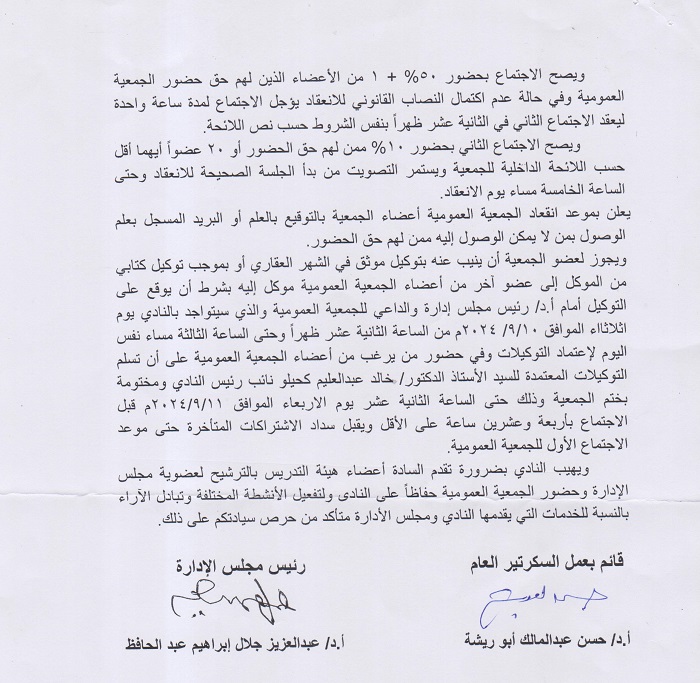 ويصح الاجتماع بحضور ٥٠% + ١ من الأعضاء الذين لهم حق حضور الجمعية
العمومية وفي حالة عدم اكتمال النصاب القانوني للانعقاد يؤجل الاجتماع لمدة ساعة واحدة
ليعقد الاجتماع الثاني في الثانية عشر ظهراً بنفس الشروط حسب نص اللائحة.
ويصح الاجتماع الثاني بحضور ١٠% ممن لهم حق الحضور أو ٢٠ عضواً أيهما أقل
حسب اللائحة الداخلية للجمعية ويستمر التصويت من بدأ الجلسة الصحيحة للانعقاد وحتى
الساعة الخامسة مساء يوم الانعقاد.
يعلن بموعد انقعاد الجمعية العمومية أعضاء الجمعية بالتوقيع بالعلم أو البريد المسجل بعلم
الوصول بمن لا يمكن الوصول إليه ممن لهم حق الحضور.
ويجوز لعضو الجمعية أن ينيب عنه بتوكيل موثق في الشهر العقاري أو بموجب توكيل كتابي
من الموكل إلى عضو آخر من أعضاء الجمعية العمومية موكل إليه بشرط أن يوقع على
التوكيل أمام أ.د/ رئيس مجلس إدارة والداعي للجمعية العمومية والذي سيتواجد بالنادي يوم
اثلاثااء الموافق ٢٠٢٤/٩/١٠م من الساعة الثانية عشر ظهراً وحتى الساعة الثالثة مساء نفس
اليوم لإعتماد التوكيلات وفي حضور من يرغب من أعضاء الجمعية العمومية على أن تسلم
التوكيلات المعتمدة للسيد الأستاذ الدكتور/ خالد عبدالعليم كحيلو نائب رئيس النادي ومختومة
بختم الجمعية وذلك حتى الساعة الثانية عشر يوم الاربعاء الموافق ٢٠٢٤/٩/١١م قبل
الاجتماع بأربعة وعشرين ساعة على الأقل ويقبل سداد الاشتراكات المتأخرة حتى موعد
الاجتماع الأول للجمعية العمومية.
ويهيب النادي بضرورة تقدم السادة أعضاء هيئة التدريس بالترشيح لعضوية مجلس
الإدارة وحضور الجمعية العمومية حفاظاً على النادى ولتفعيل الأنشطة المختلفة وتبادل الآراء
بالنسبة للخدمات التي يقدمها النادي ومجلس الأدارة متأكد من حرص سيادتكم على ذلك.
قائم بعمل السكرتير العام
رئيس مجلس الإدارة
أ.د/ حسن عبدالمالك أبو ريشة
أ.د/ عبدالعزيز جلال إبراهيم عبد الحافظ